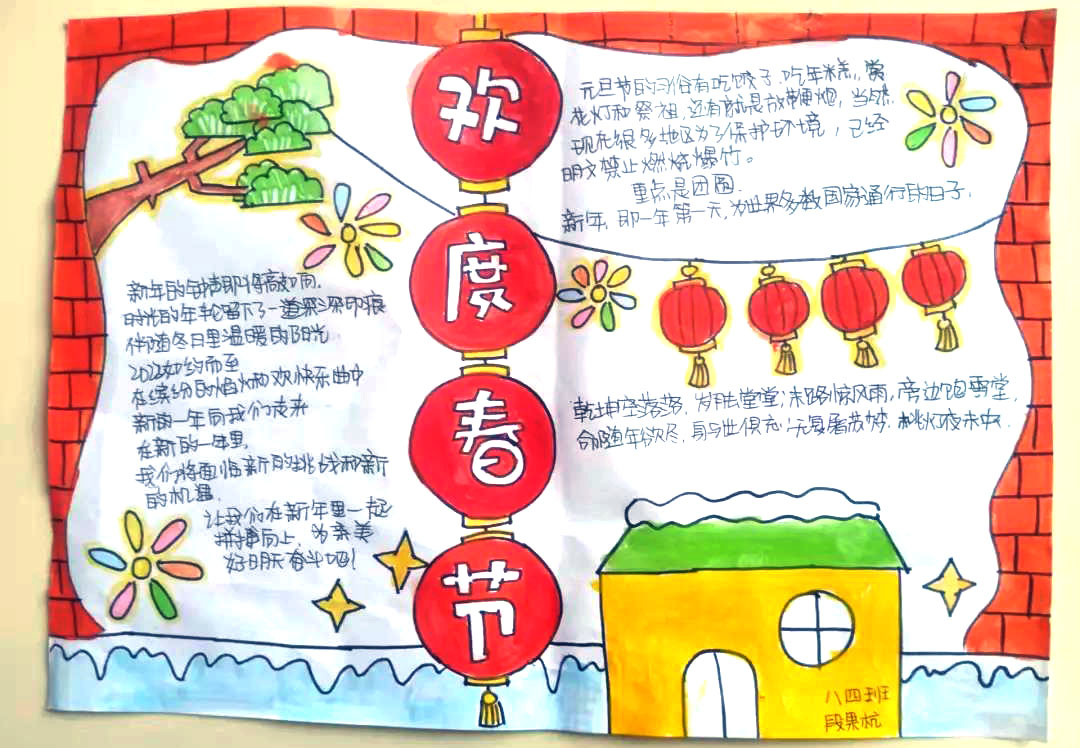 欢
度
春
节
新年的钟声即将敲如雨.
时光的年轮留下了一道深深印痕
伴随冬日里温暖的阳光
2022如约而至
在缤纷的焰火和欢快乐曲中
新的一年向我们走来
在新的一年里,
我们将面临新的挑战和新
的机遇.
让我们在新年里一起
拼搏向上,为亲美
好明天奋斗吧!
元旦节的习俗有吃饺子、吃年糕、赏
花灯和祭祖,还有就是放鞭炮,当然.
现在很多地区为了保护环境,已经
明文禁止燃烧爆竹。
重点是团圆.
新年,即一年第一天,为世界多数国家通行的日子.
乾坤空落落,岁月去堂堂;末路惊风雨,旁边饱雪堂,
命随年欲尽,身与世俱忘;无复屠苏梦,挑灯夜未央.
八四班
段果杭